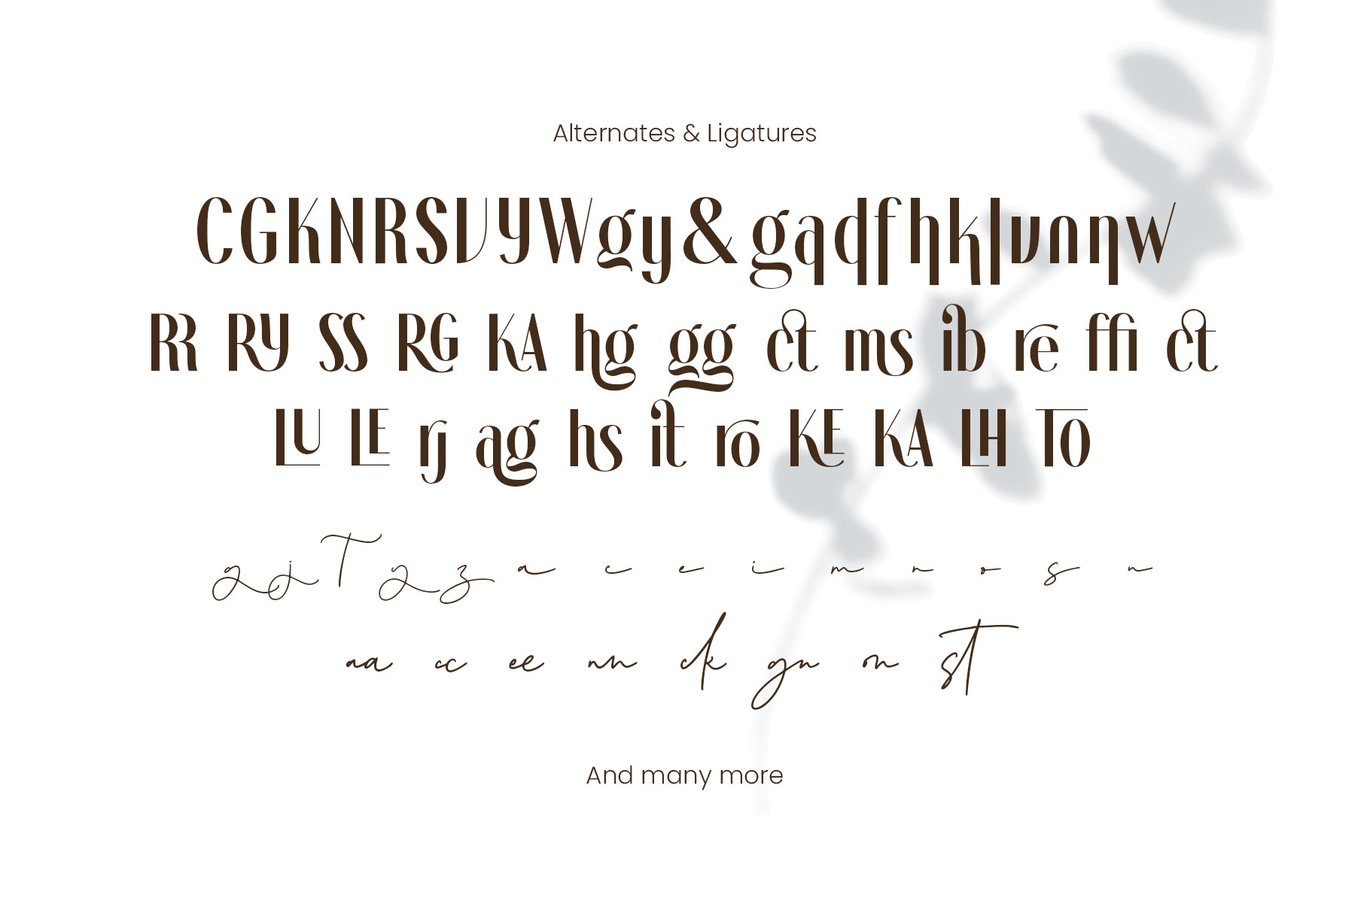 Alternates & Ligatures
CGKNRSVYWgy&gqdfhklvnηw
RR RY SS RG KA hg gg ct ms ib re ffi ct
LU LE rj ag hs it ro KE KA LH TO
g j T y z a c e i m n o s n
aa cc ee nn ck gn on st
And many more